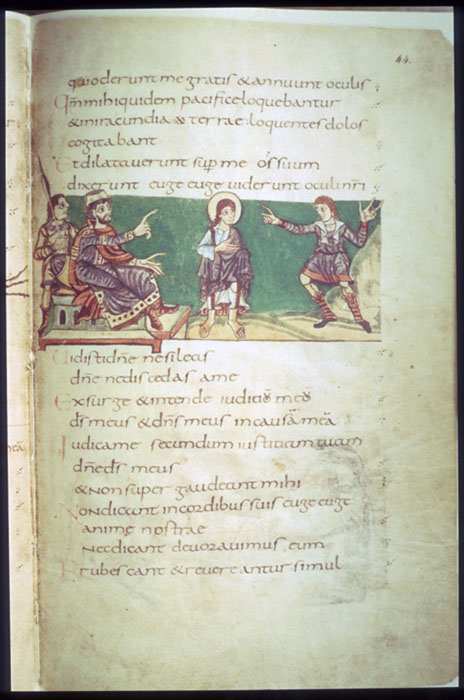 44.
qui oderunt me gratis & annuunt oculis
Qm̄ mihi quidem pacifice loquebantur
& in iracundia & terrae loquentes dolos
cogitabant
Et dilataverunt sup me os suum
dixerunt euge euge viderunt oculi nr̄i
Vidisti dn̄e ne sileas
dn̄e ne discedas a me
Exsurge & intende iudiciō meō
ds̄ meus & dn̄s meus in causā meā
Iudica me secundum iustitiam tuam
dn̄e ds̄ meus
& non super gaudeant mihi
Non dicant in cordibus suis euge euge
anime nostrae
Nec dicant devoravimus eum
Erubescant & revereantur simul